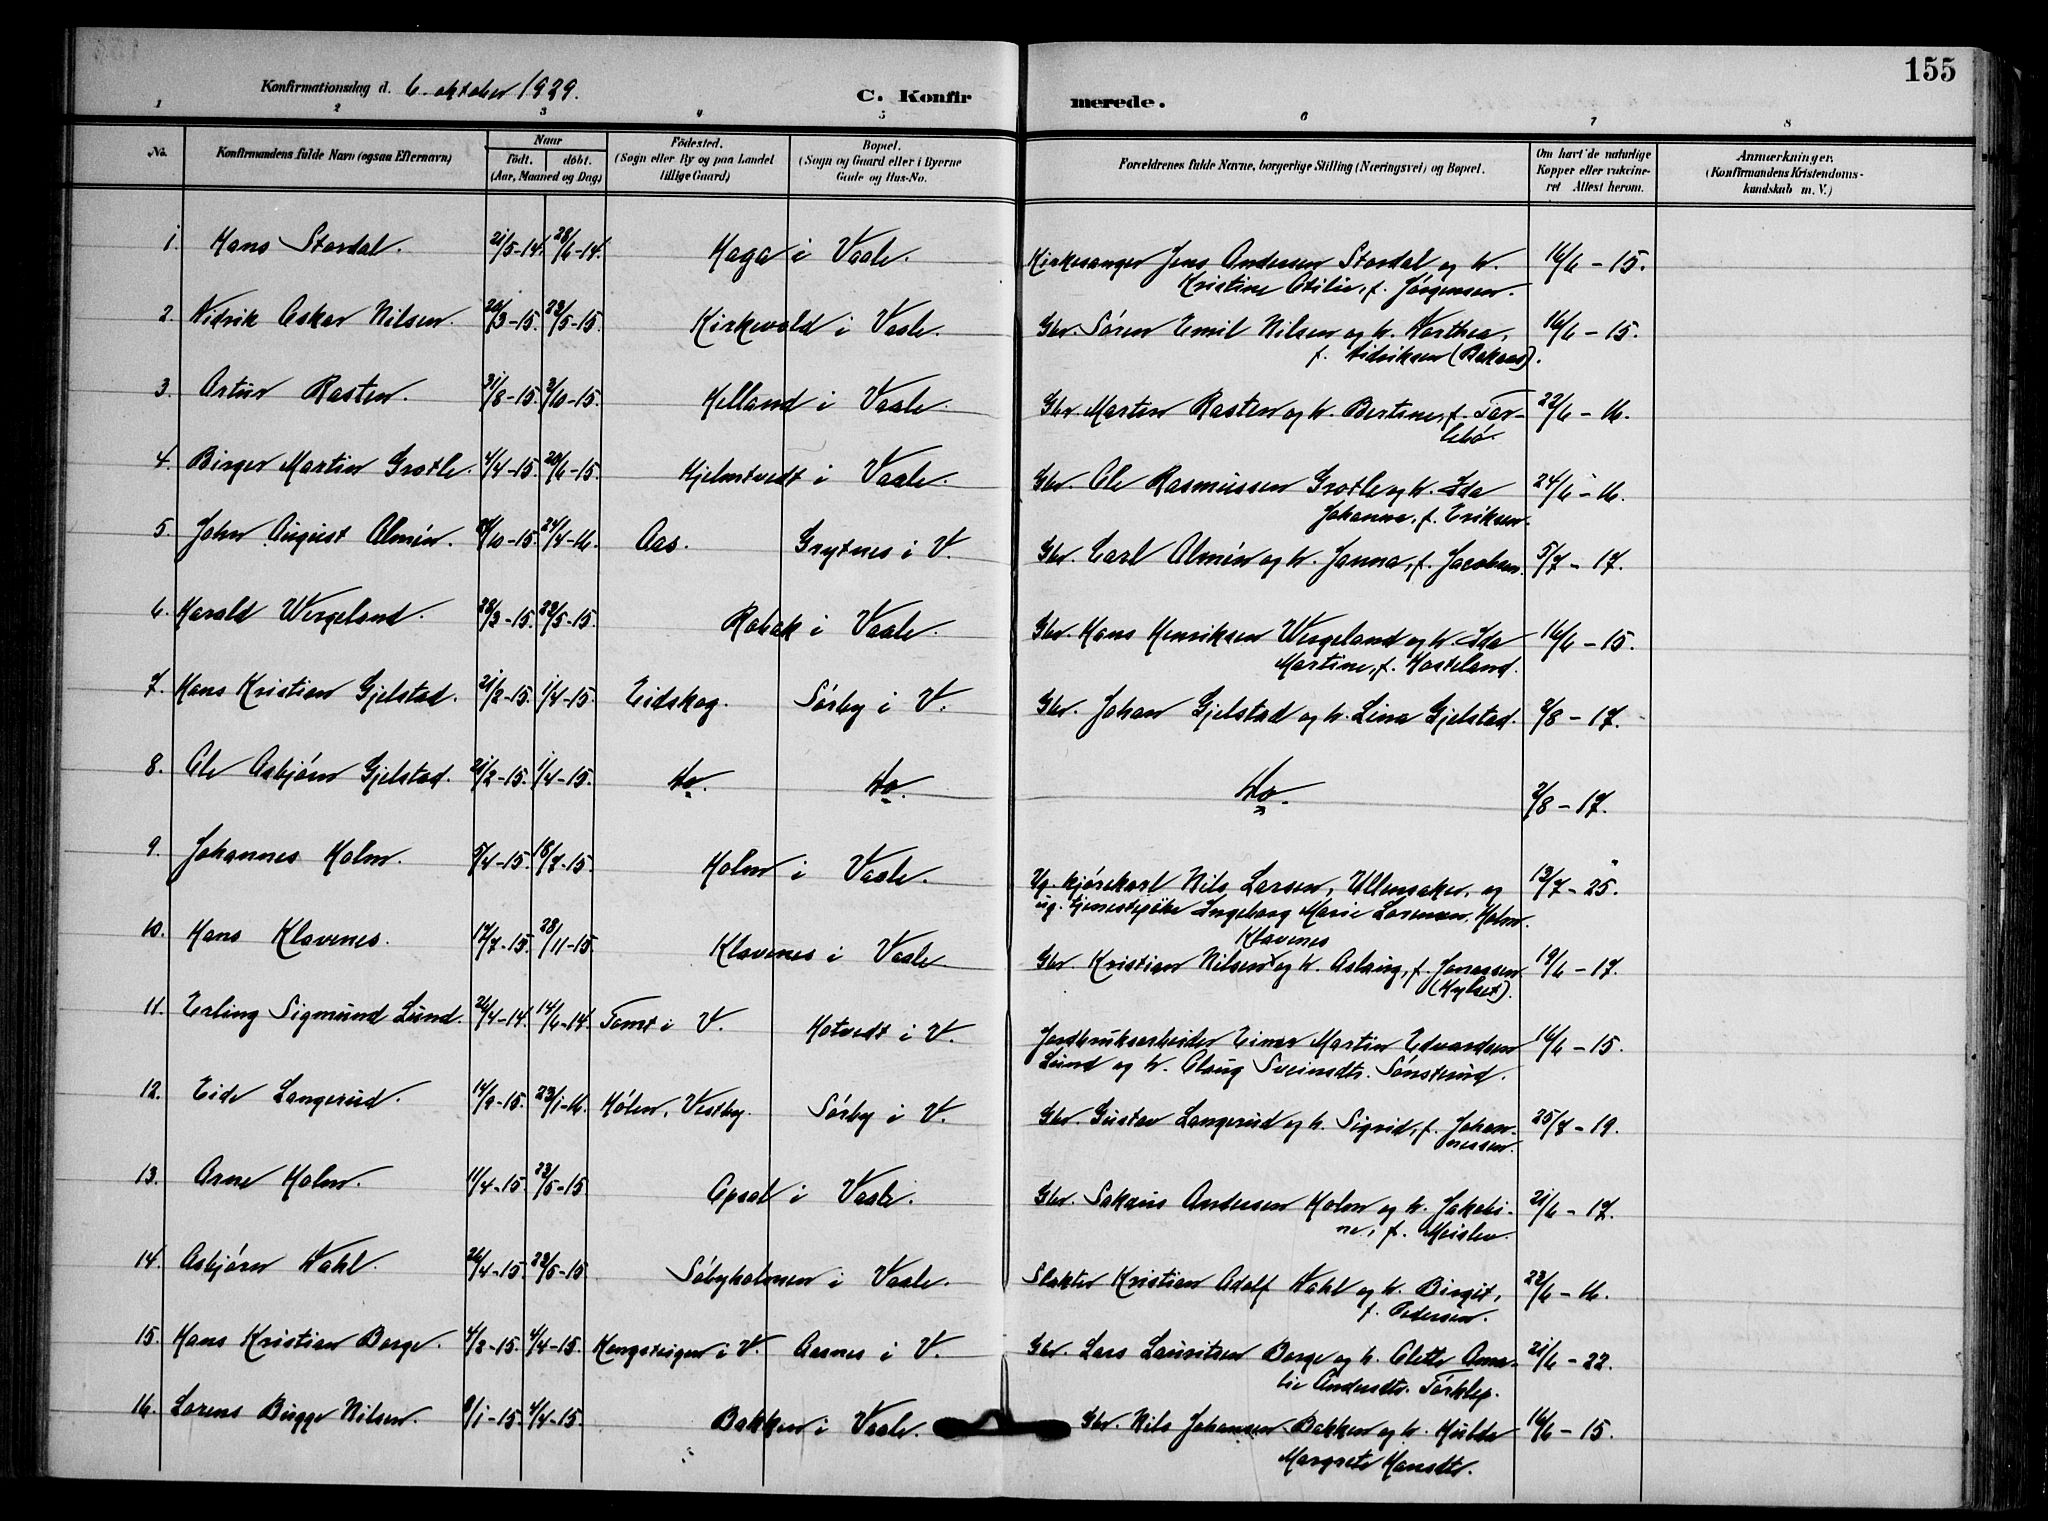 155
Konfirmationsdag d. 6. oktober 1929.
C. Konfir merede.
1 2 3 4 5 6 7 8
No. Konfirmandens fulde Navn (ogsaa Efternavn) Naar Födt. döbt. (Aar, Maaned og Dag) Födested. (Sogn eller By og paa Landet tillige Gaard) Bopæl. (Sogn og Gaard eller i Byerne Gade og Hus-No. Forældrenes fulde Navne, borgerlige Stilling (Næringsvei) og Bopæl. Om havt de naturlige Kopper eller vakcineret Attest herom. Anmærkninger. (Konfirmandens Kristendomskundskab m. V.)
1. Hans Stordal. 21/5-14. 28/6-14. Haga i Vaale. Kirkesanger Jens Andersen Stordal og h. 16/6-15.
Kristine Otilie, f. Jørgensen.
2. Didrik Oskar Nilsen. 23/5-15. Kirkevold i Vaale. Gbr. Søren Emil Nilsen og h. Dorthea, 16/6-15.
f. Didriksen (Bakaas).
3. Artur Rasten. 31/8-15. 3/10-15. Helland i Vaale. Gbr. Marten Rasten og h. Bertine, f. Tor- 22/6-16.
lebø.
4. Birger Martin Grotle. 4/4-15. 20/6-15. Hjelmtvedt i Vaale. Gbr. Ole Rasmussen Grotle og h. Ida 24/6-16.
Johanne, f. Eriksen.
5. John August Almén. 24/4-16. Aas. Grytnes i V. Gbr. Carl Almén og h. Janna, f. Jacobsen. 5/7-17.
6. Harald Wergeland. 28/3-15. 23/5-15. Rabak i Vaale. Gbr. Hans Henriksen Wergeland og h. Ida 16/6-15.
Martine, f. Hasteland.
7. Hans Kristian Gjelstad. 21/2-15. 1/4-15. Eidskog. Sørby i V. Gbr. Johan Gjelstad og h. Lina Gjelstad. 2/8-17.
8. Ole Asbjørn Gjelstad. 21/2-15. 1/4-15. Do. Do. Do. 2/8-17.
9. Johannes Holm. 18/7-15. Holm i Vaale. Ug. kjørekarl Nils Larsen, Ullensaker, og 13/7-25.
ug. tjenestepike Ingeborg Marie Lorensen, Holm.
10. Hans Klavenes. 17/7-15. 28/11-15. Klavenes i Vaale. Klavenes
Gbr. Kristian Nilsen og h. Aslaug, f. Jonassen 19/6-17.
11. Erling Sigmund Lund. 26/4-14. 14/6-14. Tomt i V. Hotvedt i V. Jordbruksarbeider Einar Martin Edvardsen 16/6-15.
Lund og h. Olaug Sveinsdtr. Sønsterud.
12. Eide Langerud. 14/9-15. 23/1-16. Hølen, Vestby. Sørby i V. Gbr. Gustav Langerud og h. Sigrid, f. Johan- 25/8-19.
nessen.
13. Arne Holm. 11/4-15. 23/5-15. Opsal i Vaale. Gbr. Sakaus Andersen Holm og h. Jakobi- 21/6-17.
ne, f. Meisler.
14. Asbjørn Dahl. 26/4-15. 23/5-15. Søbyholmen i Vaale. Slakter Kristian Adolf Dahl og h. Birgit, 22/6-16.
f. Pedersen.
15. Hans Kristian Borge. 4/2-15. 4/4-15. Hengsteigen i V. Aasnes i V. Gbr. Lars Lauritsen Borge og h. Olette Ama- 21/6-22.
lie Andersdtr. Tørklep.
16. Lorens Bugge Nilsen. 8/1-15. 4/4-15. Bakken i Vaale. Gbr. Nils Johansen Bakken og h. Hulda 16/6-15.
Margrete Hansdtr.